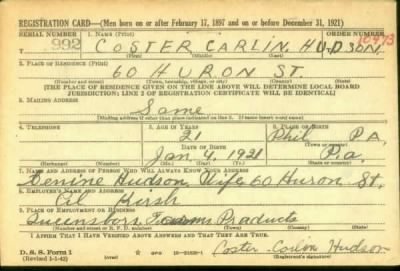 REGISTRATION CARD—(Men born on or after February 17, 1897 and on or before December 31, 1921)
SERIAL NUMBER 1. NAME (Print) ORDER NUMBER
992 COSTER CARLIN HUDSON 10493
(First) (Middle) (Last)
2. PLACE OF RESIDENCE (Print)
60 HURON ST.
(Number and street) (Town, township, village, or city) (County) (State)
[THE PLACE OF RESIDENCE GIVEN ON THE LINE ABOVE WILL DETERMINE LOCAL BOARD
JURISDICTION; LINE 2 OF REGISTRATION CERTIFICATE WILL BE IDENTICAL]
3. MAILING ADDRESS
Same
[Mailing address if other than place indicated on line 2. If same insert word same]
4. TELEPHONE 5. AGE IN YEARS 6. PLACE OF BIRTH
21 Phil PA.
DATE OF BIRTH (Town or county)
Jan. 4, 1921 Pa.
(Exchange) (Number) (Mo.) (Day) (Yr.) (State or country)
7. NAME AND ADDRESS OF PERSON WHO WILL ALWAYS KNOW YOUR ADDRESS
Hudson, Wife, 60 Huron St.
8. EMPLOYER'S NAME AND ADDRESS
Al Hirsh
9. PLACE OF EMPLOYMENT OR BUSINESS
Queensboro Farms Products
(Number and street or R. F. D. number) (Town) (County) (State)
I AFFIRM THAT I HAVE VERIFIED ABOVE ANSWERS AND THAT THEY ARE TRUE.
D. S. S. Form 1
(Revised 1-1-42) (over) GPO 16-21630-1 Coster Carlin Hudson
(Registrant's signature)